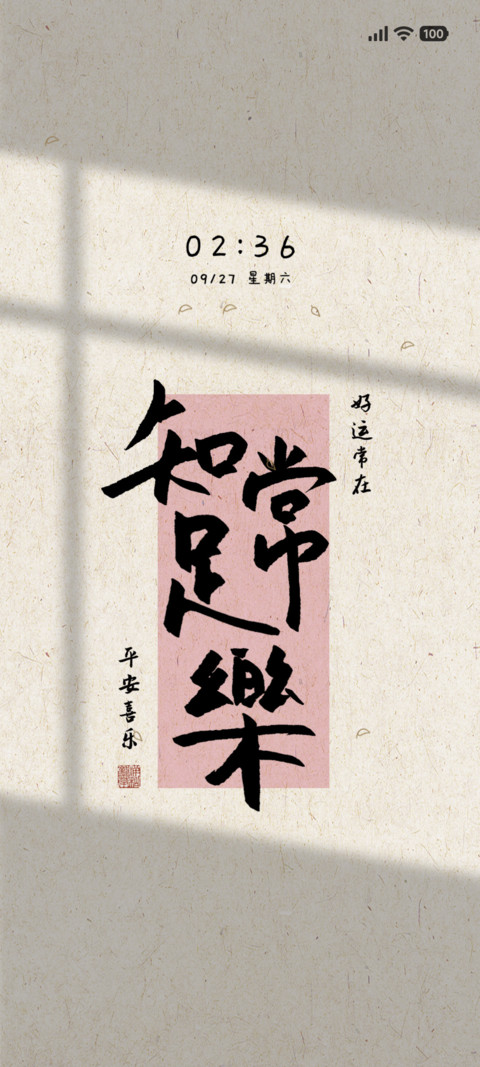 100
02:36
09/27 星期六
知足常樂
好运常在
平安喜乐